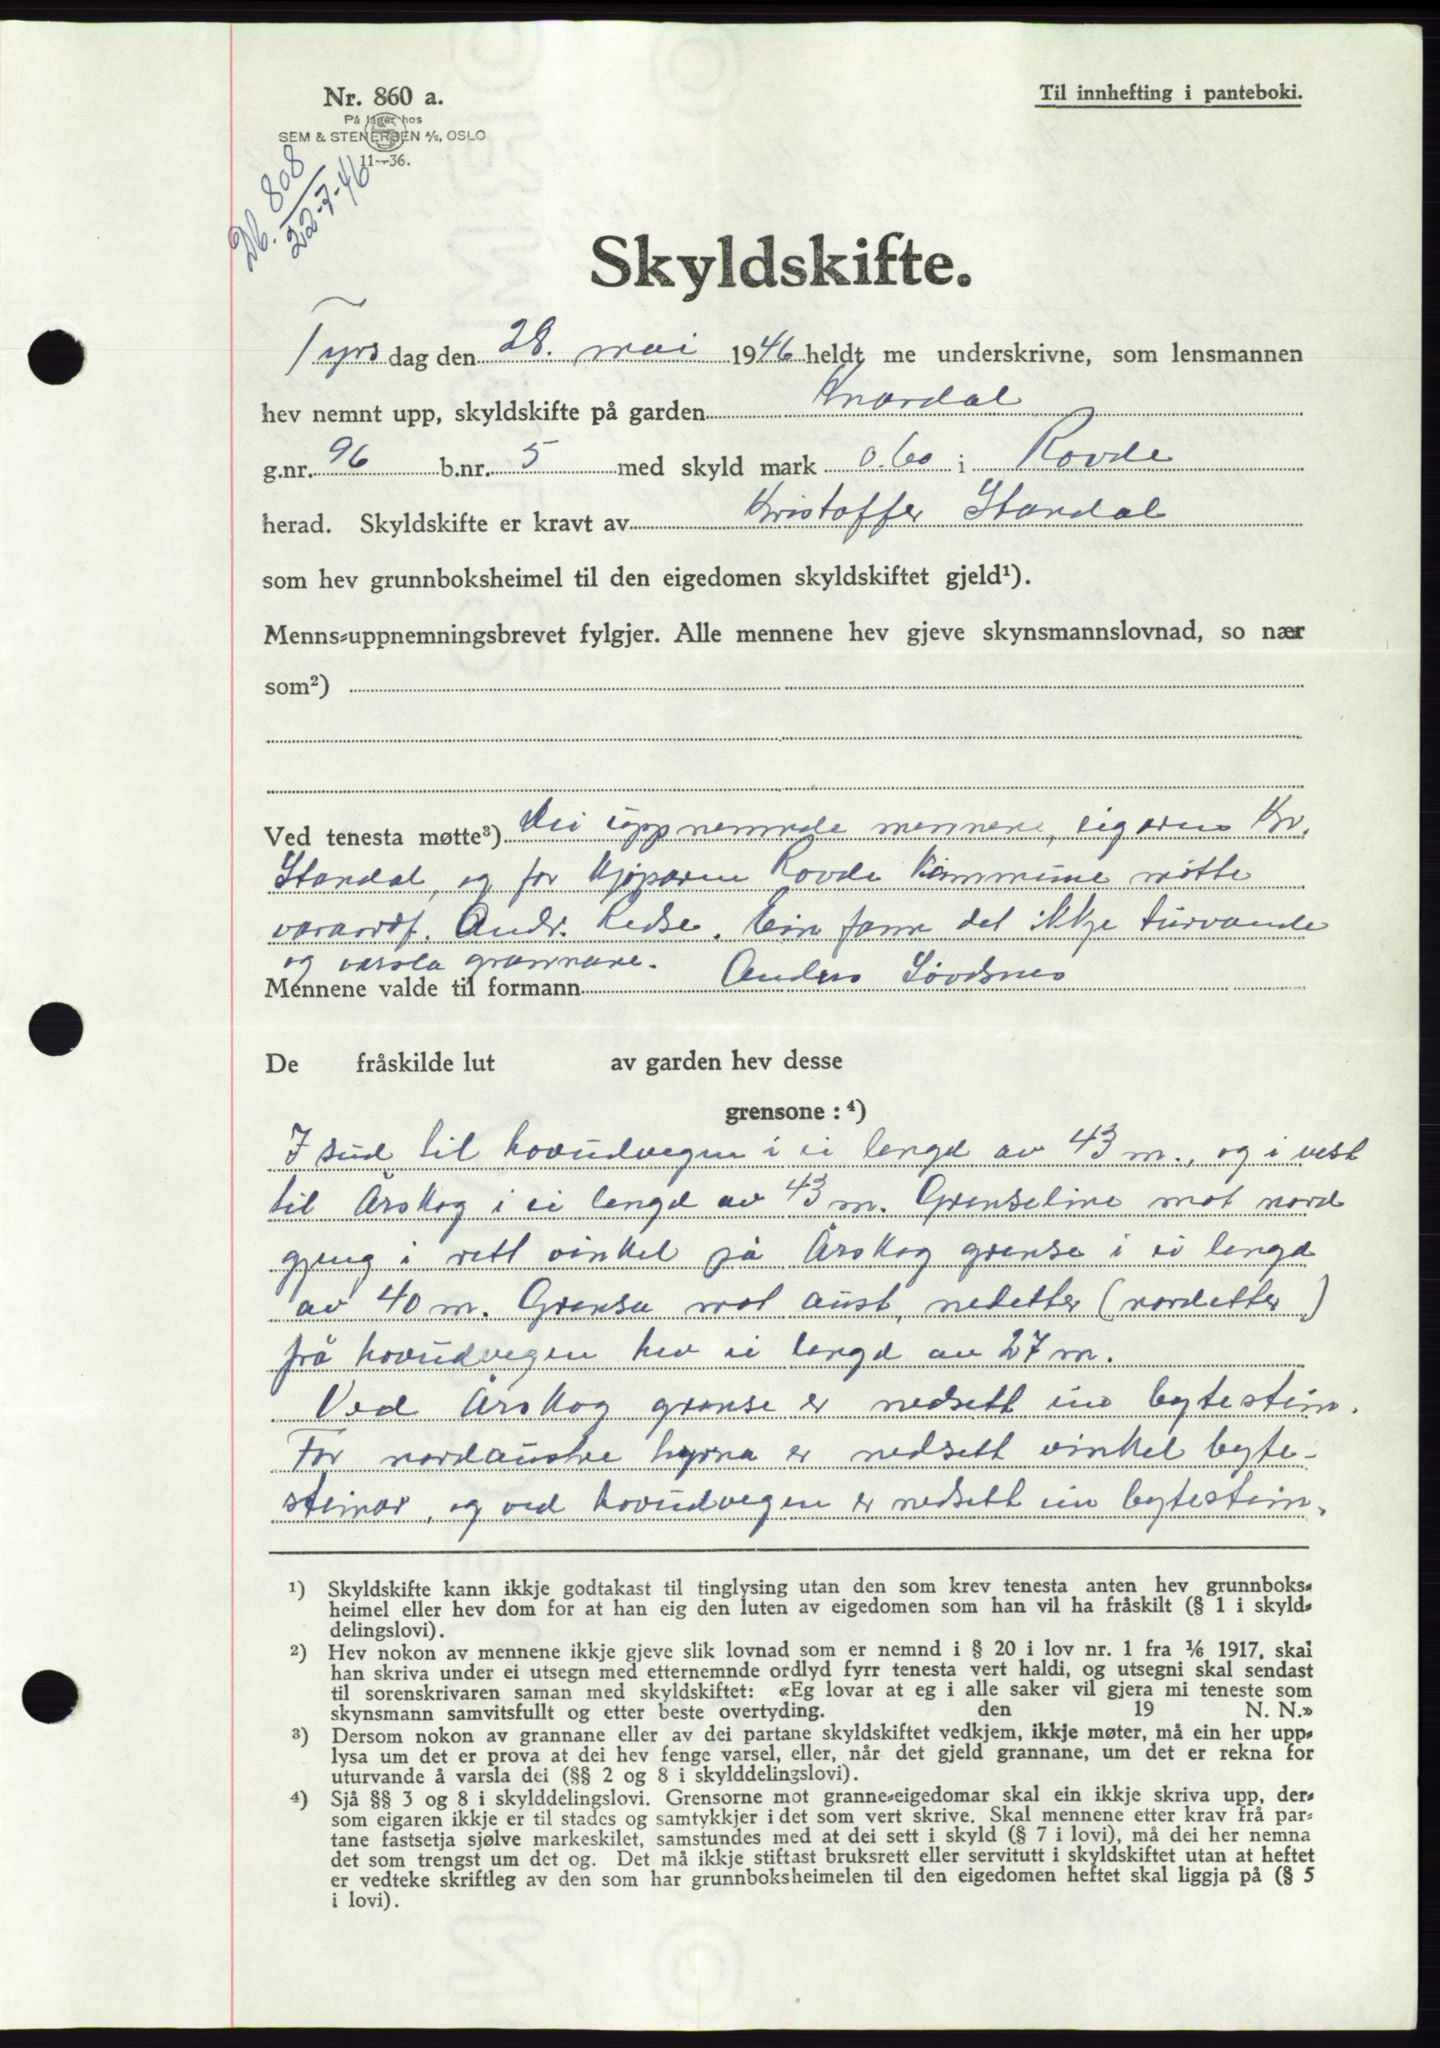 Nr. 860 a.
På lager hos
SEM & STENERSEN A/S, OSLO
11—36.
Til innhefting i panteboki.
Db. 808
22-7-46
Skyldskifte.
Tyrsdag den 28. mai 1946 heldt me underskrivne, som lensmannen
hev nemnt upp, skyldskifte på garden Knardal
g.nr. 96 b.nr. 5 med skyld mark 0.60 i Rovde
herad. Skyldskifte er kravt av Kristoffer Standal
som hev grunnboksheimel til den eigedomen skyldskiftet gjeld¹).
Menns-uppnemningsbrevet fylgjer. Alle mennene hev gjeve skynsmannslovnad, so nær
som²)
Ved tenesta møtte³) Dei uppnemnde mennene, eigaren Kr.
Standal, og for kjøparen Rovde Kommune møtte
varaordf. Andr. Redse. Ein fann det ikkje turvande
og varsla grannane.
Mennene valde til formann Anders Søvdsnes
De fråskilde lut av garden hev desse
grensone : ⁴)
I sud til hovudvegen i ei lengd av 43 m., og i vest
til Årskog i ei lengd av 43 m. Grenseline mot nord
gjeng i rett vinkel på Årskog grense i ei lengd
av 40 m. Grensa mot aust, nedetter (nordetter)
frå hovudvegen hev ei lengd av 27 m.
Ved Årskog grense er nedsett ein bytestein.
For nordaustre hyrna er nedsett vinkel byte-
steinar, og ved hovudvegen er nedsett ein bytestein.
¹) Skyldskifte kann ikkje godtakast til tinglysing utan den som krev tenesta anten hev grunnboks-
heimel eller hev dom for at han eig den luten av eigedomen som han vil ha fråskilt (§ 1 i skyld-
delingslovi).
²) Hev nokon av mennene ikkje gjeve slik lovnad som er nemnd i § 20 i lov nr. 1 fra 1/6 1917, skal
han skriva under ei utsegn med etternemnde ordlyd fyrr tenesta vert haldi, og utsegni skal sendast
til sorenskrivaren saman med skyldskiftet: «Eg lovar at eg i alle saker vil gjera mi teneste som
skynsmann samvitsfullt og etter beste overtyding. den 19 N. N.»
³) Dersom nokon av grannane eller av dei partane skyldskiftet vedkjem, ikkje møter, må ein her upp-
lysa um det er prova at dei hev fenge varsel, eller, når det gjeld grannane, um det er rekna for
uturvande å varsla dei (§§ 2 og 8 i skylddelingslovi).
⁴) Sjå §§ 3 og 8 i skylddelingslovi. Grensorne mot granne-eigedomar skal ein ikkje skriva upp, der-
som eigaren ikkje er til stades og samtykkjer i det som vert skrive. Skal mennene etter krav frå par-
tane fastsetja sjølve markeskilet, samstundes med at dei sett i skyld (§ 7 i lovi), må dei her nemna
det som trengst um det og. Det må ikkje stiftast bruksrett eller servitutt i skyldskiftet utan at heftet
er vedteke skriftleg av den som har grunnboksheimelen til den eigedomen heftet skal liggja på (§ 5
i lovi).